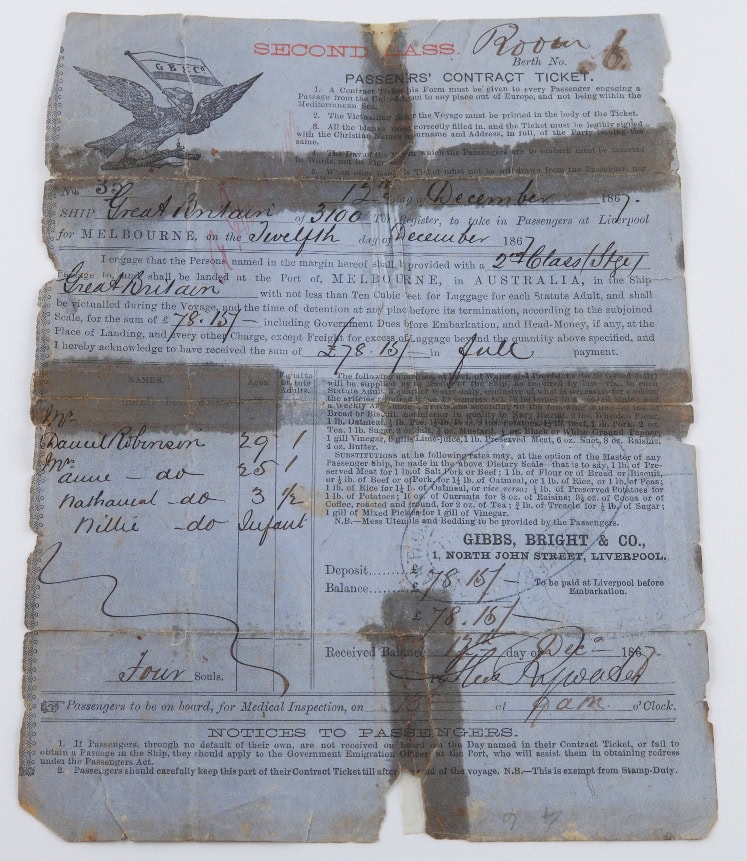 G B & Co
SECOND CLASS. Room
Berth No. 6
PASSENGERS' CONTRACT TICKET.
1. A Contract Ticket in this Form must be given to every Passenger engaging a
Passage from the United Kingdom to any place out of Europe, and not being within the
Mediterranean Sea.
2. The Victualling Scale for the Voyage must be printed in the body of the Ticket.
3. All the blanks must be correctly filled in, and the Ticket must be legibly signed
with the Christian Names and Surname and Address, in full, of the Party issuing the
same.
4. The Day of the Month on which the Passengers are to embark must be inserted
in Words, not in
5. When once issued this Ticket must not be withdrawn from the Passenger, nor
No. 12th day of December 1867.
SHIP Great Britain of 3100 Tons Register, to take in Passengers at Liverpool
for MELBOURNE, on the Twelfth day of December 1867
I engage that the Persons named in the margin hereof shall be provided with a 2nd Class
Passage to, and shall be landed at the Port of, MELBOURNE, in AUSTRALIA, in the Ship
Great Britain with not less than Ten Cubic Feet for Luggage for each Statute Adult, and shall
be victualled during the Voyage, and the time of detention at any place before its termination, according to the subjoined
Scale, for the sum of £78.15/- including Government Dues before Embarkation, and Head-Money, if any, at the
Place of Landing, and every other Charge, except Freight for excess of Luggage beyond the quantity above specified, and
I hereby acknowledge to have received the sum of £78.15/- in full payment.
NAMES. Ages. Equal to Statute Adults.
Mr
Daniel Robinson 29 1
Mrs
Anne - do 25 1
Nathaniel - do 3 ½
Willie - do Infant
The following quantities, at least, of Water and Provisions
will be supplied by the Master of the Ship, as required by law, viz., to each
Statute Adult
4 oz. Butter.
1 gill Vinegar, 6 gills Lime-juice, 1 lb. Preserved Meat, 6 oz. Suet, 8 oz. Raisins,
SUBSTITUTIONS at the following rates may, at the option of the Master of any
Passenger Ship, be made in the above Dietary Scale—that is to say, 1 lb. of Pre-
served Meat for 1 lb. of Salt Pork or Beef; 1 lb. of Flour or of Bread or Biscuit,
or ½ lb. of Beef or of Pork, for 1¼ lb. of Oatmeal, or 1 lb. of Rice, or 1 lb. of Peas;
1 lb. of Rice for 1¼ lb. of Oatmeal, or vice versa; ¼ lb. of Preserved Potatoes for
1 lb. of Potatoes; 10 oz. of Currants for 8 oz. of Raisins; 3½ oz. of Cocoa or of
Coffee, roasted and ground, for 2 oz. of Tea; ¾ lb. of Treacle for ½ lb. of Sugar;
1 gill of Mixed Pickles for 1 gill of Vinegar.
N.B.—Mess Utensils and Bedding to be provided by the Passengers.
GIBBS, BRIGHT & CO.,
1, NORTH JOHN STREET, LIVERPOOL.
Deposit........£
Balance........£ 78.15/- To be paid at Liverpool before
Embarkation.
£ 78.15/-
Received Balance 12th day of Decr 1867
Four Souls.
Passengers to be on board, for Medical Inspection, on 13 at 9 am o'Clock.
NOTICES TO PASSENGERS.
1. If Passengers, through no default of their own, are not received on board on the Day named in their Contract Ticket, or fail to
obtain a Passage in the Ship, they should apply to the Government Emigration Officer at the Port, who will assist them in obtaining redress
under the Passengers Act.
2. Passengers should carefully keep this part of their Contract Ticket till after the end of the voyage. N.B.—This is exempt from Stamp-Duty.